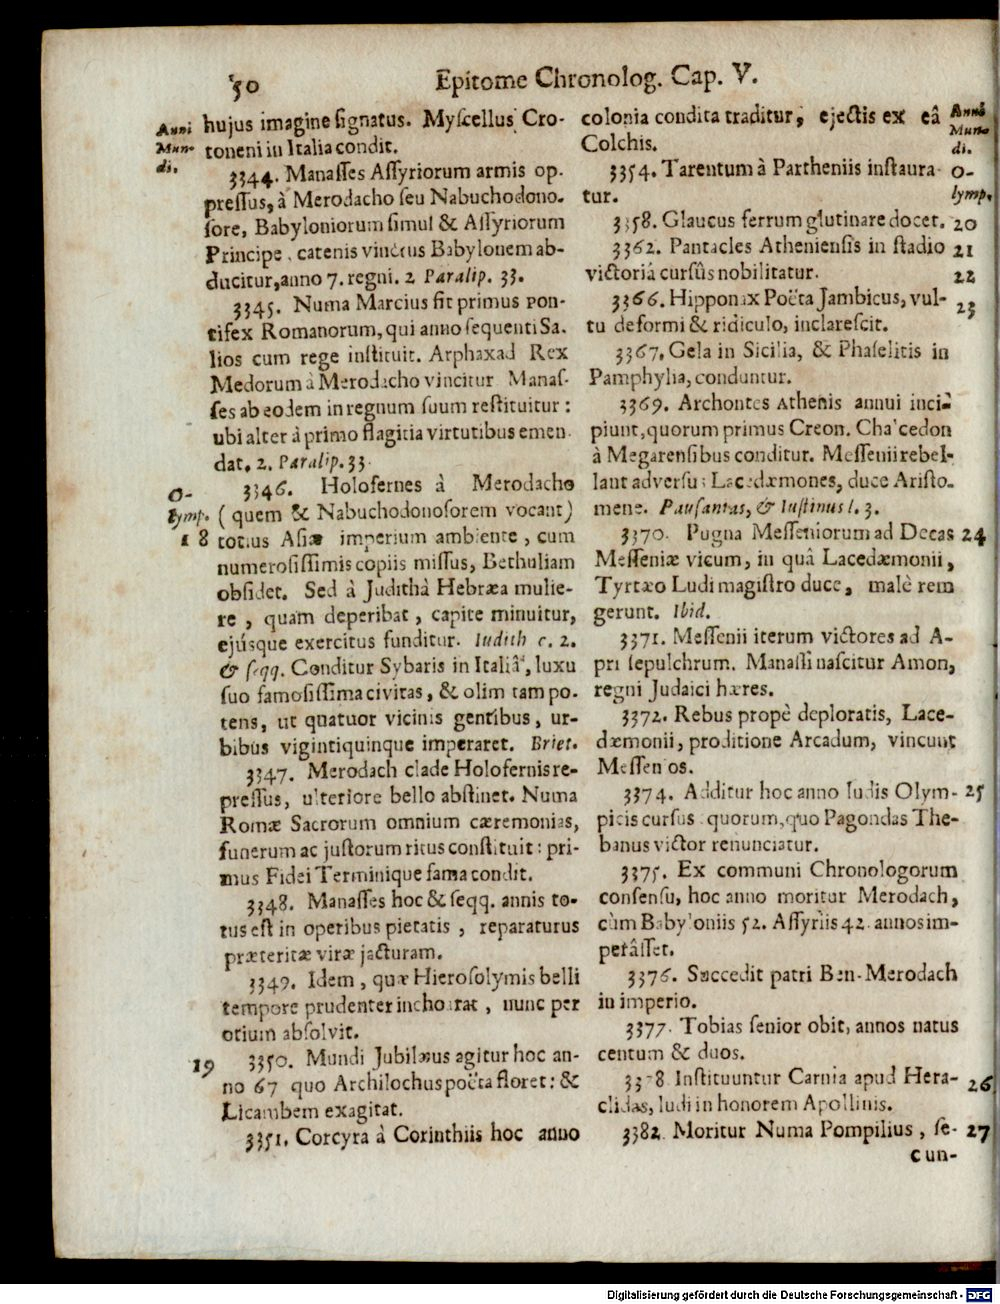 50
Epitome Chronolog. Cap. V.
Anni
Mun-
di.
hujus imagine signatus. Myscellus Cro-
toneni in Italia condit.
3344. Manasses Assyriorum armis op-
pressus, à Merodacho seu Nabuchodono-
sore, Babyloniorum simul & Assyriorum
Principe, catenis vinctus Babylonem ab-
ducitur, anno 7. regni. 2 Paralip. 33.
3345. Numa Marcius fit primus Pon-
tifex Romanorum, qui anno sequenti Sa-
lios cum rege instituit. Arphaxad Rex
Medorum à Merodacho vincitur Manas-
ses ab eodem in regnum suum restituitur:
ubi alter à primo flagitia virtutibus emen-
dat. 2. Paralip. 33.
O-
lymp.
18
3346. Holofernes à Merodacho
(quem & Nabuchodonosorem vocant)
totius Asiæ imperium ambiente, cum
numerosissimis copiis missus, Bethuliam
obsidet. Sed à Judithâ Hebræa mulie-
re, quam deperibat, capite minuitur,
ejúsque exercitus funditur. Iudith c. 2.
& seqq. Conditur Sybaris in Italiâ, luxu
suo famosissima civitas, & olim tam po-
tens, ut quatuor vicinis gentibus, ur-
bibus vigintiquinque imperaret. Briet.
3347. Merodach clade Holofernis re-
pressus, ulteriore bello abstinet. Numa
Romæ Sacrorum omnium cæremonias,
funerum ac justorum ritus constituit: pri-
mus Fidei Terminique fama condit.
3348. Manasses hoc & seqq. annis to-
tus est in operibus pietatis, reparaturus
præteritæ vitæ jacturam.
3349. Idem, quæ Hierosolymis belli
tempore prudenter inchoarat, nunc per
otium absolvit.
19
3350. Mundi Jubilæus agitur hoc an-
no 67 quo Archilochus poëta floret: &
Licambem exagitat.
3351. Corcyra à Corinthiis hoc anno
colonia condita traditur, ejectis ex eâ
Colchis.
Anni
Mun-
di.
O-
lymp.
3354. Tarentum à Partheniis instaura-
tur.
3358. Glaucus ferrum glutinare docet. 20
3362. Pantacles Atheniensis in stadio 21
victoriâ cursûs nobilitatur. 22
3366. Hipponax Poëta Jambicus, vul- 23
tu deformi & ridiculo, inclarescit.
3367. Gela in Sicilia, & Phaselitis in
Pamphylia, conduntur.
3369. Archontes Athenis annui inci-
piunt, quorum primus Creon. Chalcedon
à Megarensibus conditur. Messenii rebel-
lant adversus Lacedæmones, duce Aristo-
mene. Pausanias, & Iustinus l. 3.
3370. Pugna Messeniorum ad Deras 24
Messeniæ vicum, in quâ Lacedæmonii,
Tyrtæo Ludimagistro duce, malè rem
gerunt. Ibid.
3371. Messenii iterum victores ad A-
pri sepulchrum. Manassi nascitur Amon,
regni Judaici hæres.
3372. Rebus propè deploratis, Lace-
dæmonii, proditione Arcadum, vincunt
Messenios.
3374. Additur hoc anno ludis Olym- 25
picis cursus equorum, quo Pagondas The-
banus victor renunciatur.
3375. Ex communi Chronologorum
consensu, hoc anno moritur Merodach,
cùm Babyloniis 52. Assyriis 42. annos im-
perâsset.
3376. Succedit patri Ben-Merodach
in imperio.
3377. Tobias senior obit, annos natus
centum & duos.
3378 Instituuntur Carnia apud Hera- 26
clidas, ludi in honorem Apollinis.
3382. Moritur Numa Pompilius, se- 27
cun-
Digitalisierung gefördert durch die Deutsche Forschungsgemeinschaft - DFG